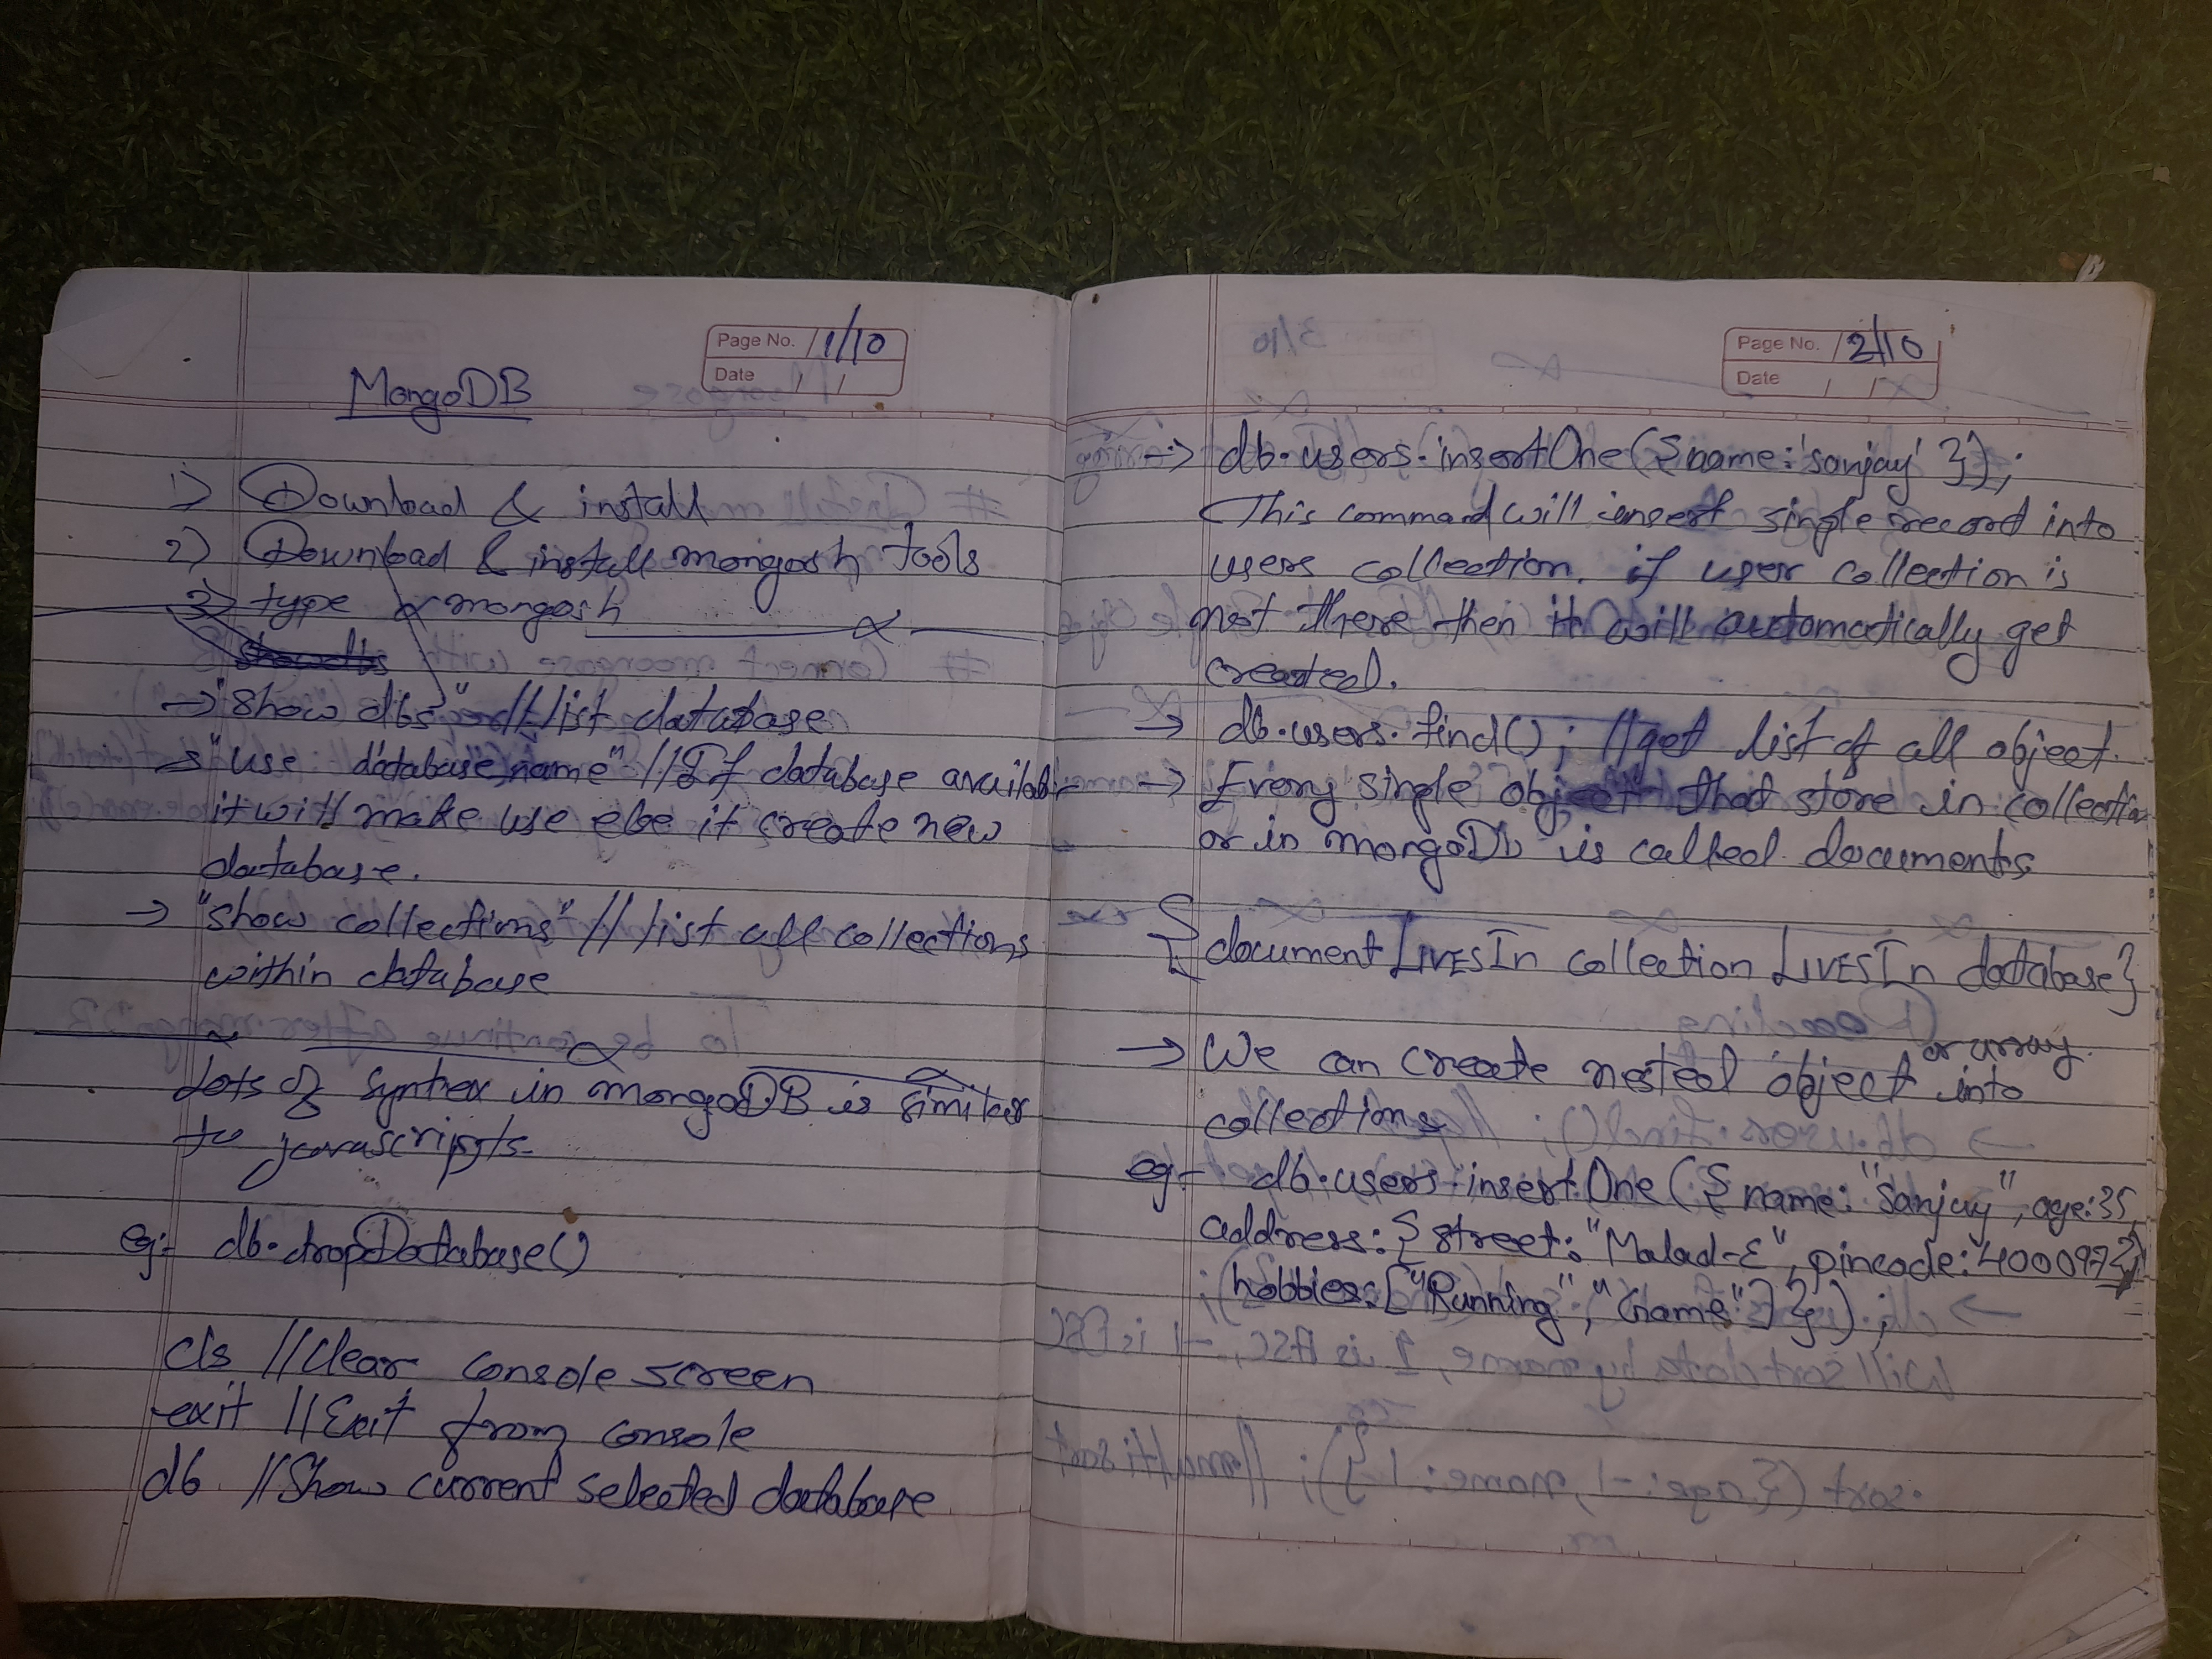 Page No. 1/10
Date
MongoDB
1) Download & install
2) Download & install mongosh Tools
3) type mongosh
→ "show dbs" // list database
→ "use database name" // If database available
it will make use else it create new
database.
→ "show collections" // list all collections
within database
Lots of syntax in mongoDB is similar
to javascripts.
eg:- db.dropDatabase()
cls // Clear console screen
exit // Exit from console
db // Show current selected database
Page No. 2/10
Date
→ db.users.insertOne({name:'sanjay'});
This command will insert single record into
users collection, if user collection is
not there then it will automatically get
created.
→ db.users.find(); // get list of all object.
→ Every single object that store in collection
or in mongoDB is called documents
{document LIVES In collection LIVES In database}
→ We can create nested object or array into
collections.
eg:- db.users.insertOne({name:"Sanjay", age:35
address:{street:"Malad-E", pincode:400097},
hobbies:["Running", "Game"]});